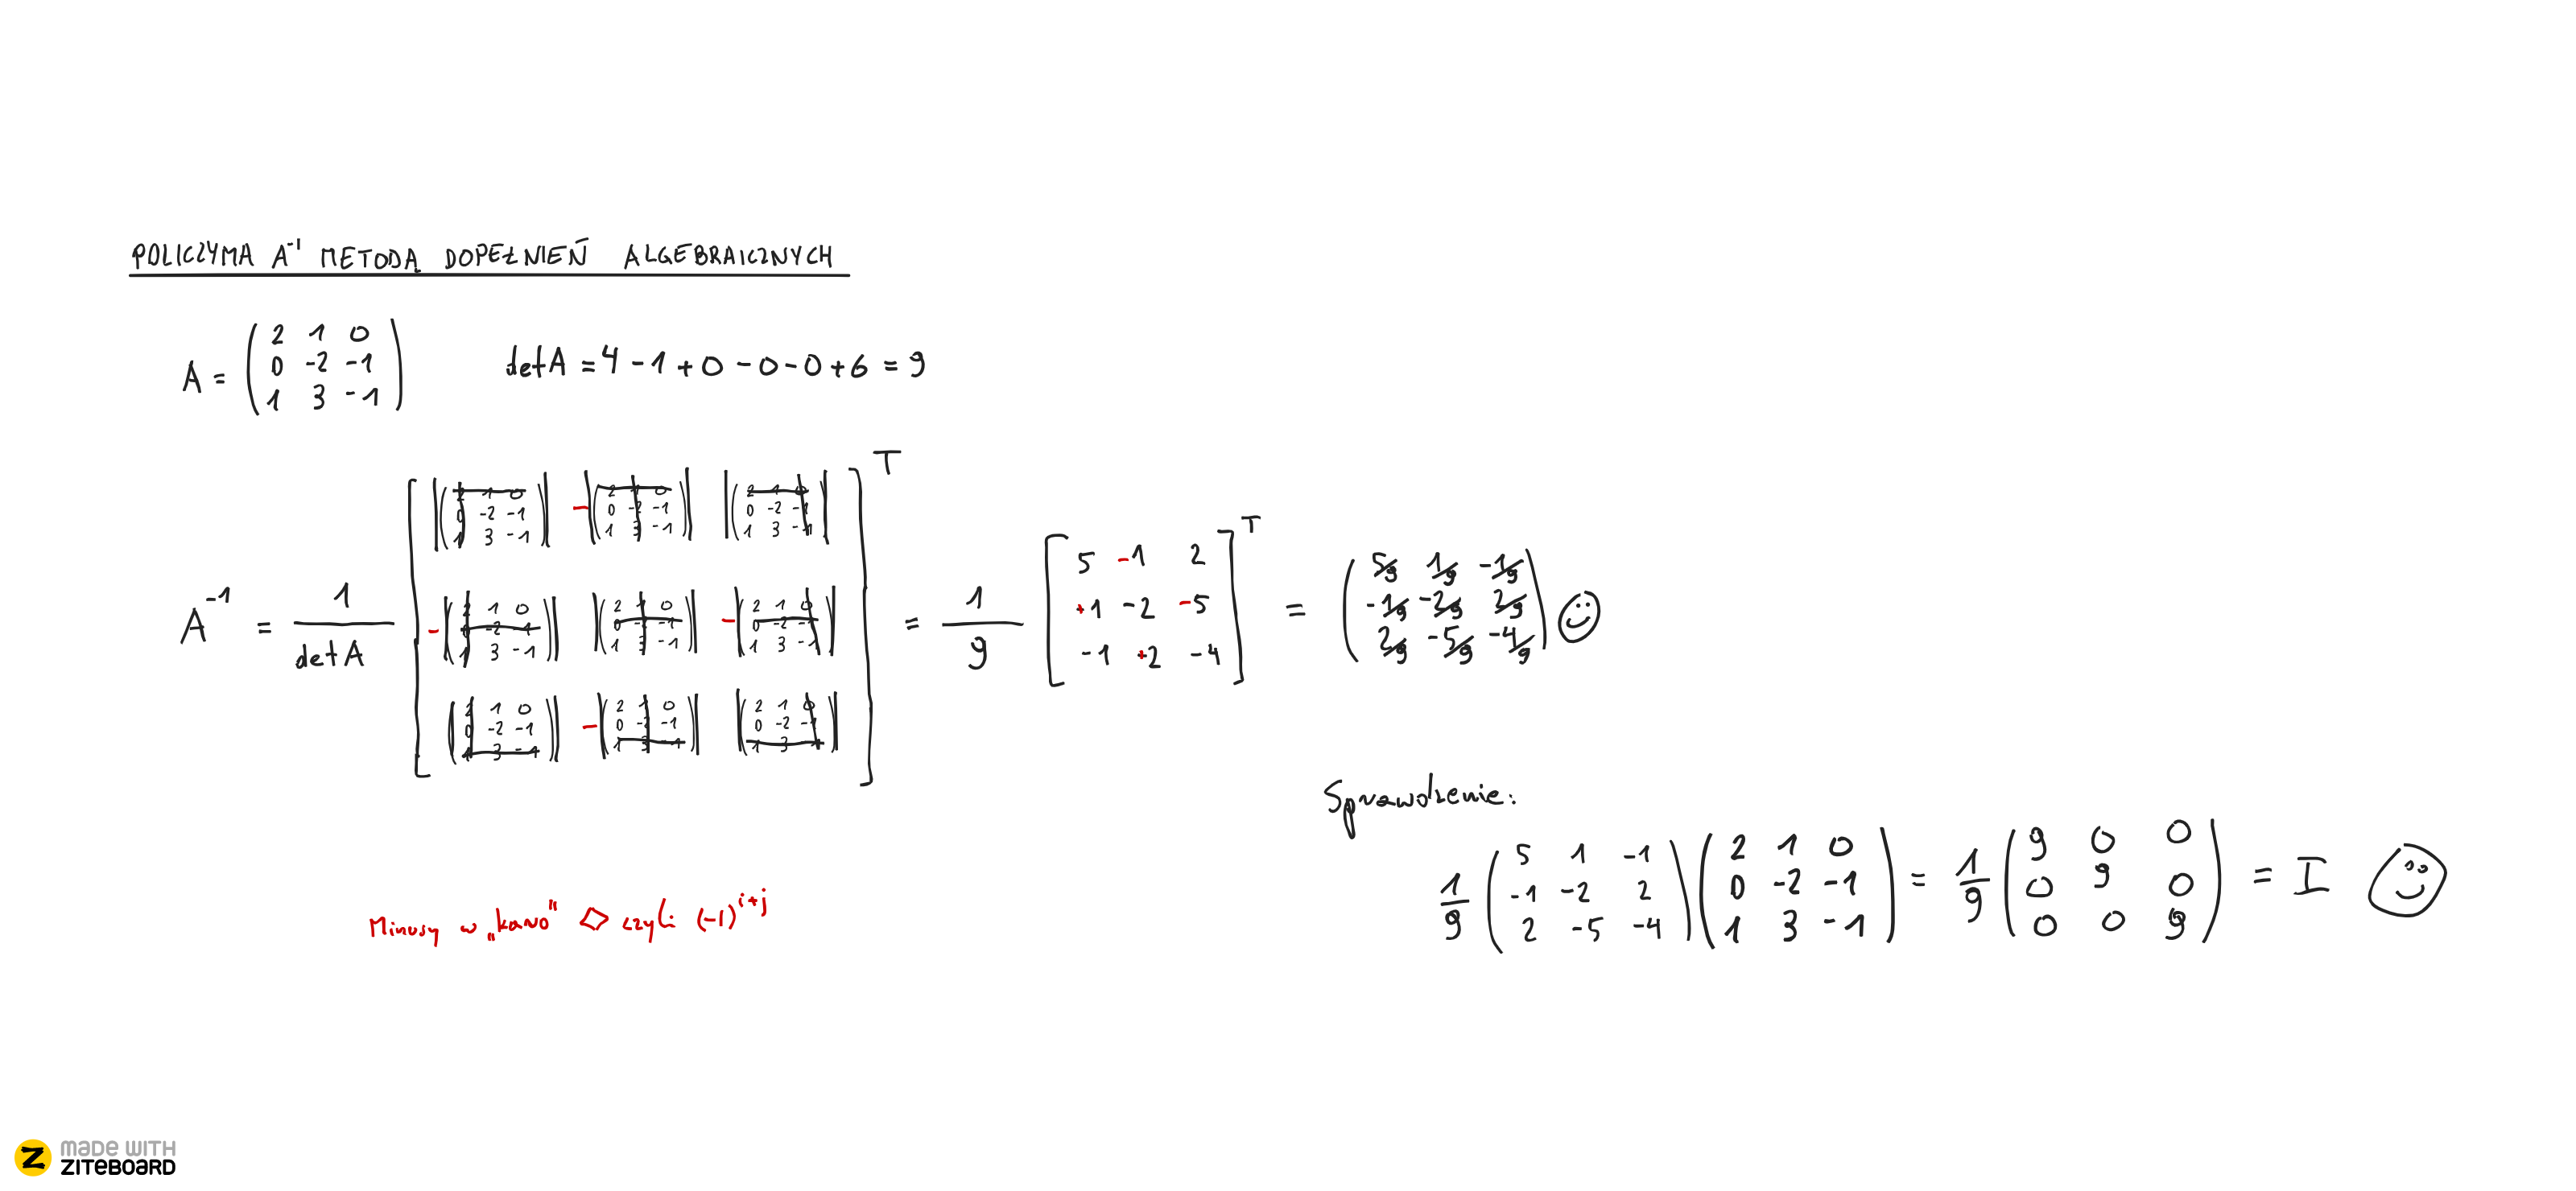 POLICZYMA A⁻¹ METODĄ DOPEŁNIEŃ ALGEBRAICZNYCH
A = ( 2 1 0
0 -2 -1
1 3 -1 )
det A = 4 - 1 + 0 - 0 - 0 + 6 = 9
A⁻¹ = 1/det A [ |( 2 1 0
0 -2 -1
1 3 -1 )| -|( 2 1 0
0 -2 -1
1 3 -1 )| |( 2 1 0
0 -2 -1
1 3 -1 )|
-|( 2 1 0
0 -2 -1
1 3 -1 )| |( 2 1 0
0 -2 -1
1 3 -1 )| -|( 2 1 0
0 -2 -1
1 3 -1 )|
|( 2 1 0
0 -2 -1
1 3 -1 )| -|( 2 1 0
0 -2 -1
1 3 -1 )| |( 2 1 0
0 -2 -1
1 3 -1 )| ]ᵀ
= 1/9 [ 5 -1 2
+1 -2 -5
-1 +2 -4 ]ᵀ
= ( 5/9 1/9 -1/9
-1/9 -2/9 2/9
2/9 -5/9 -4/9 )
Sprawdzenie:
1/9 ( 5 1 -1
-1 -2 2
2 -5 -4 ) ( 2 1 0
0 -2 -1
1 3 -1 ) = 1/9 ( 9 0 0
0 9 0
0 0 9 ) = I
Minusy w „karo" ◇ czyli (-1)^(i+j)
MADE WITH
ZITEBOARD